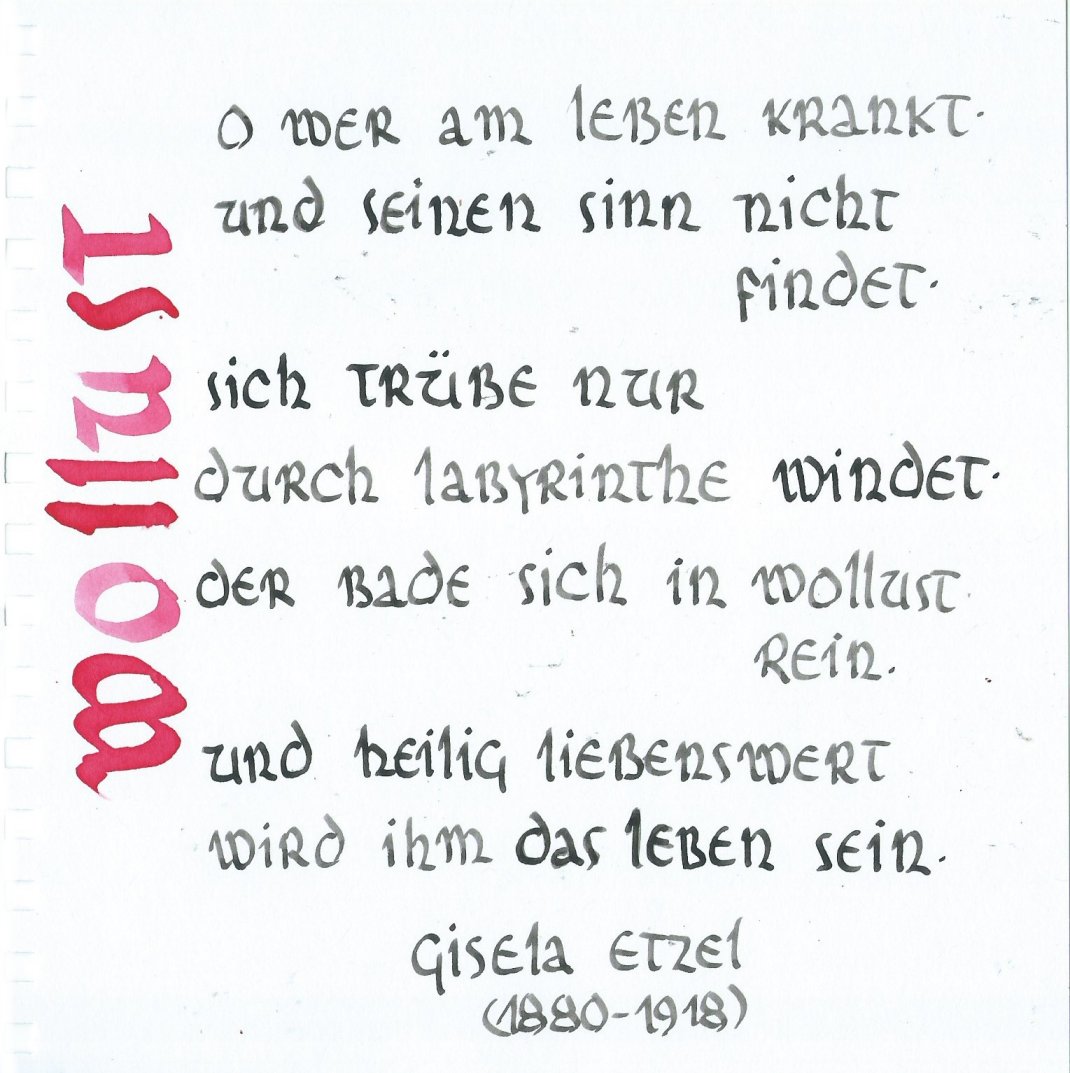 wollust
o wer am leben krankt·
und seinen sinn nicht
findet·
sich trübe nur
durch labyrinthe windet·
der bade sich in wollust
rein.
und heilig liebenswert
wird ihm das leben sein.
Gisela Etzel
(1880-1918)